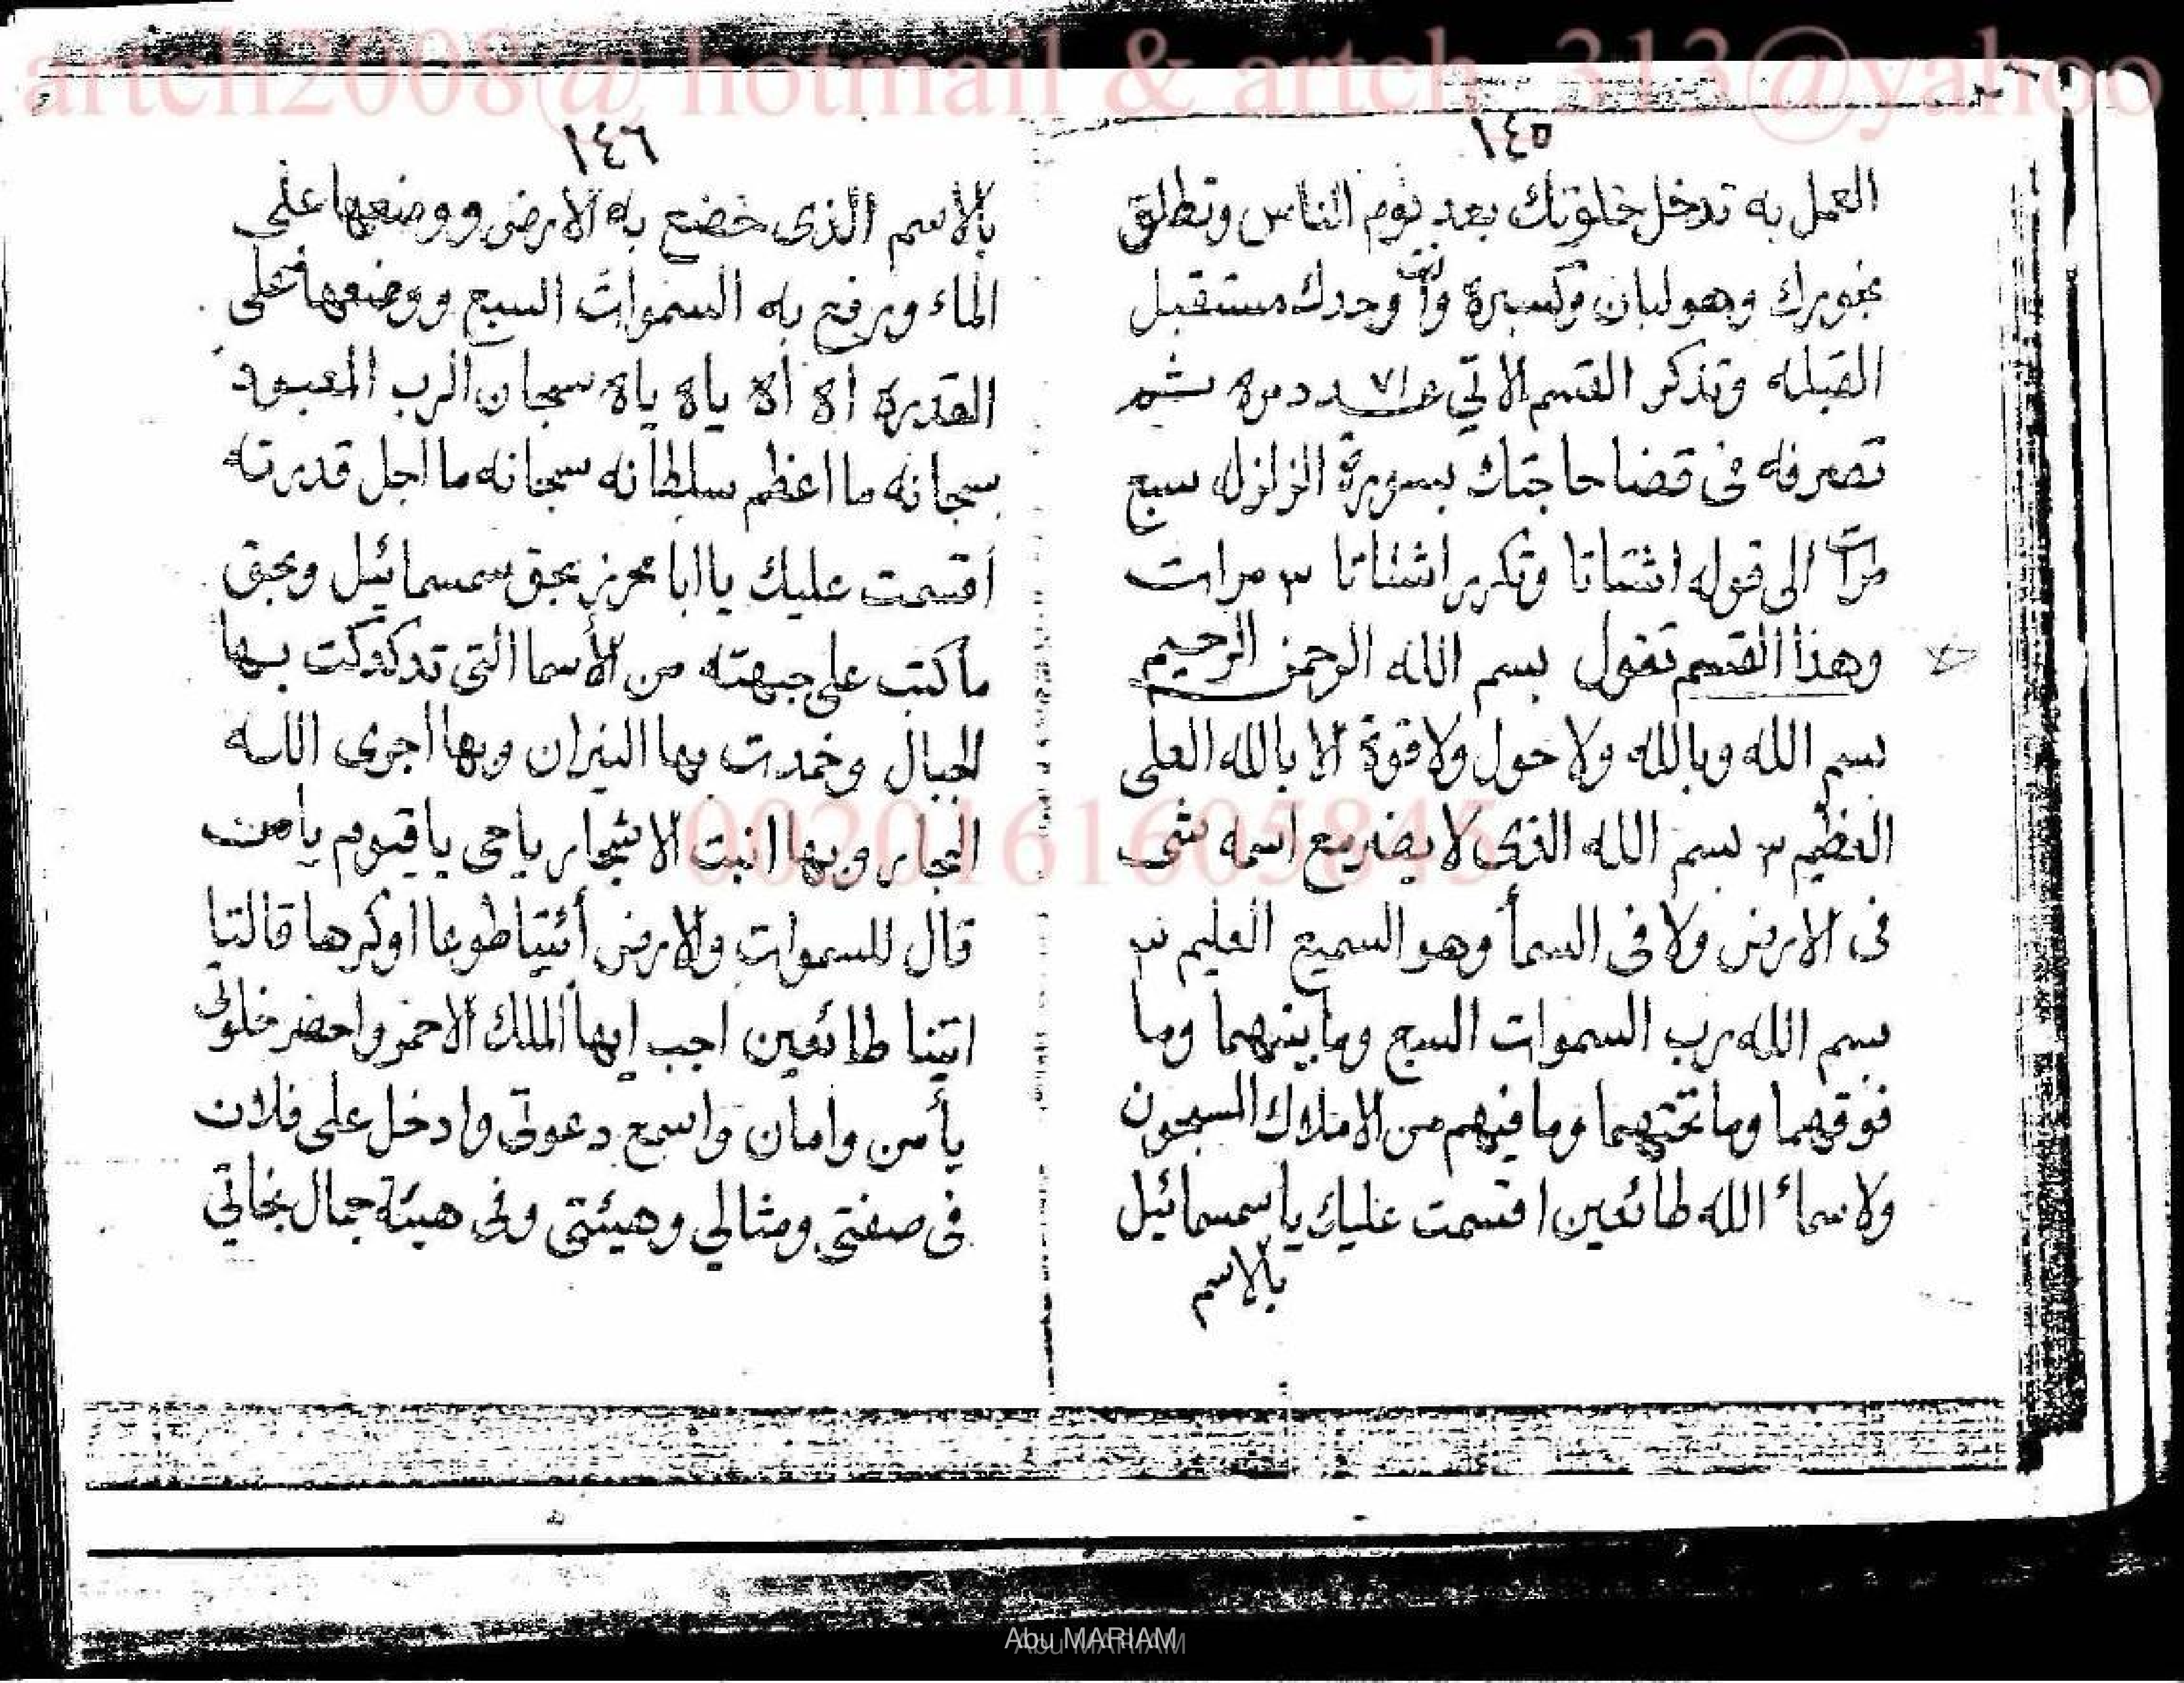 artch2008@ hotmail & artch_313@yahoo
١٤٥
العمل به تدخل خلوتك بعد نوم الناس وتطلق
بخورك وهو لبان وكسبرة وانت وحدك مستقبل
القبله وتذكر القسم الاتي عدد مره ثم
تصرفه فى قضا حاجتك بسورة الزلزله سبع
مرات الى قوله اشتاتا وتكرر اشتاتا ٣ مرات
وهذا القسم تقول بسم الله الرحمن الرحيم
بسم الله وبالله ولا حول ولا قوة الا بالله العلى
العظيم ٣ بسم الله الذى لا يضر مع اسمه شى
فى الارض ولا فى السمأ وهو السميع العليم ٣
بسم الله رب السموات السبع وما بينهما وما
فوقهما وما تحتهما وما فيهم من الاملاك
ولاسماء الله طائعين اقسمت عليك ياسمسمائيل
بالاسم
١٤٦
بالاسم الذى خضع به الارض ووضعها على
الماء ورفع به السموات السبع ووضعها على
القدرة اه اه اه ياه ياه سبحان الرب المعبود
سبحانه ما اعظم سلطانه سبحانه ما اجل قدرته
اقسمت عليك يا ابا محرز بحق سمسمائيل وبحق
ما كتب على جبهته من الأسما التى تدكدكت بها
الجبال وخمدت بها النيران وبها اجرى الله
البحار وبها انبت الاشجار ياحى ياقيوم يامن
قال للسموات والارض أئتيا طوعا اوكرها قالتا
اتينا طائعين اجب ايها الملك الاحمر واحضر خلوتى
يأمن وامان واسمع دعوتى وادخل على فلان
فى صفتى ومثالى وهيئتى وفى هيئة جمال بخاتى
0020161605845
Abu MARIAM